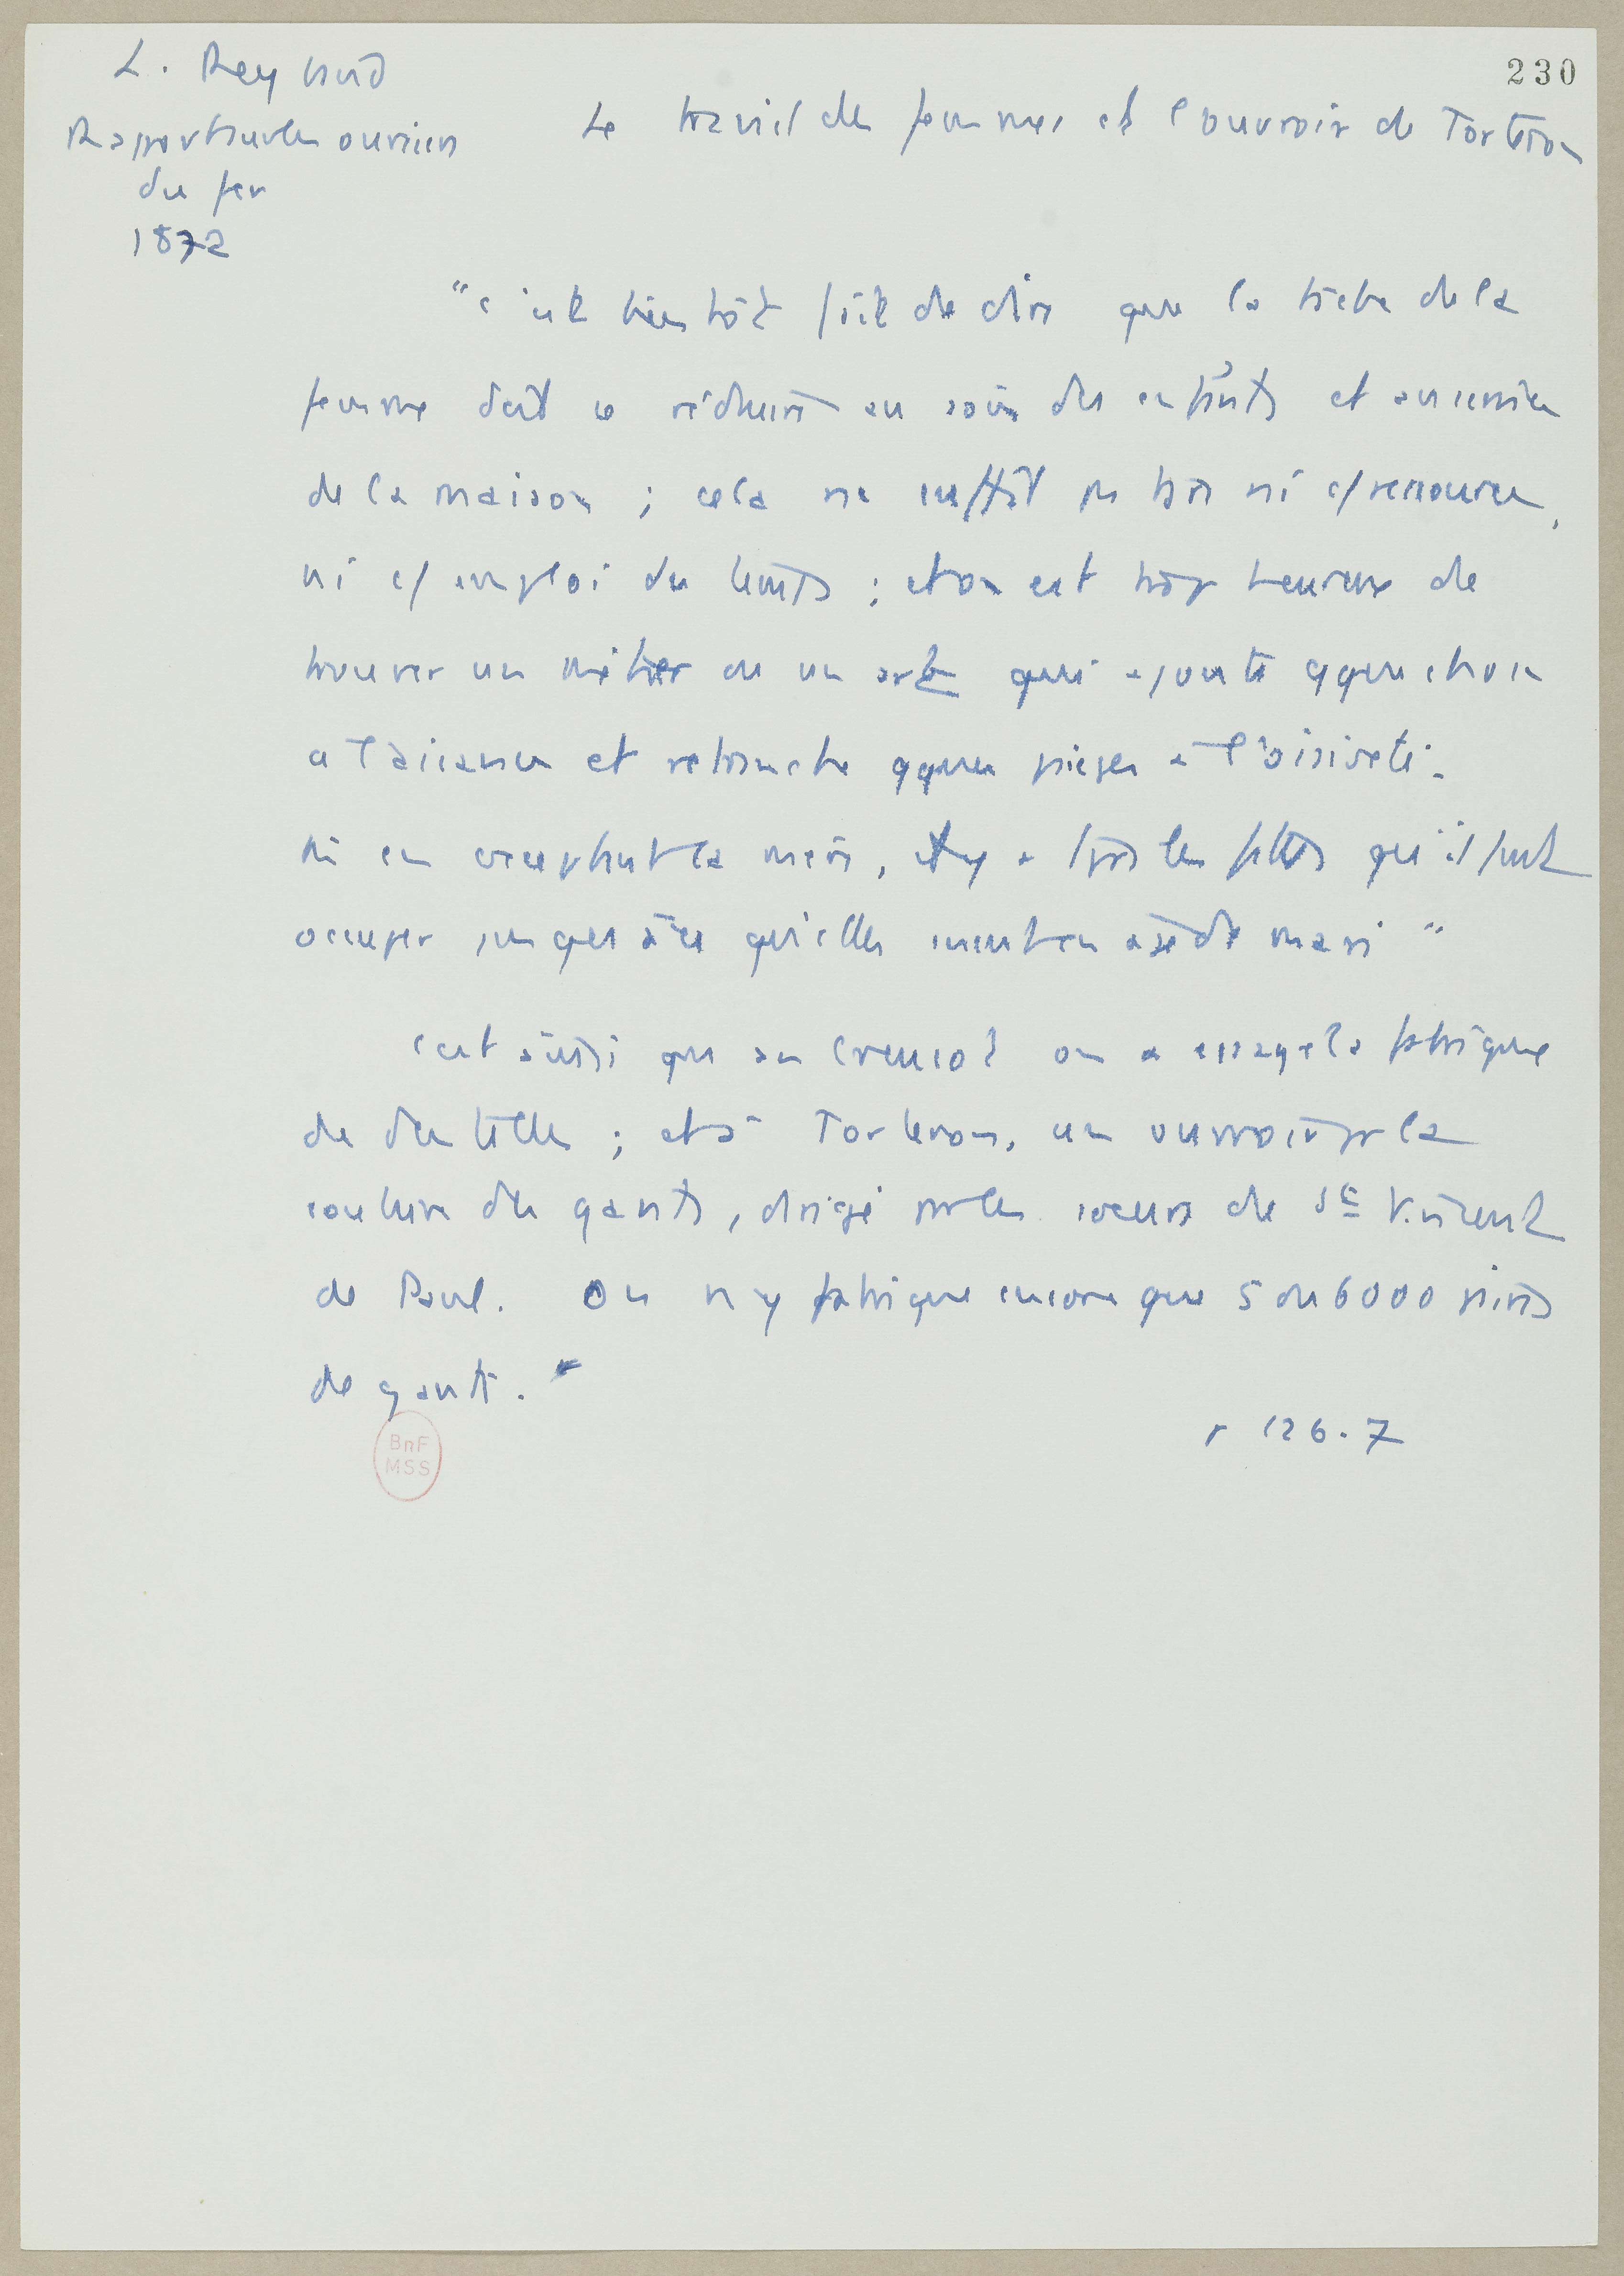 230
L. Reybaud
Rapport sur les ouvriers
du fer
1872
Le travail des femmes et l'ouvroir de Torteron
"c'est bientôt fait de dire que la tâche de la
femme doit se réduire au soin des enfants et au service
de la maison ; cela ne suffit pas trop ni c/ ressource,
ni c/ emploi du temps ; et on est trop heureux de
trouver un métier ou un art qui ajoute qque chose
a l'aisance et retranche qques pièges à l'oisiveté.
en occupant la mère, il y a les filles qu'il faut
occuper jusqu'à ce qu'elles mari "
C'est ainsi qu'au Creusot on a essayé la fabrique
de dentelles ; et à Torteron, un ouvroir pr la
couture des gants, dirigé par les soeurs de St Vincent
de Paul. On n'y fabrique encore que 5 ou 6000 paires
de gants.
p 126.7
BnF
MSS